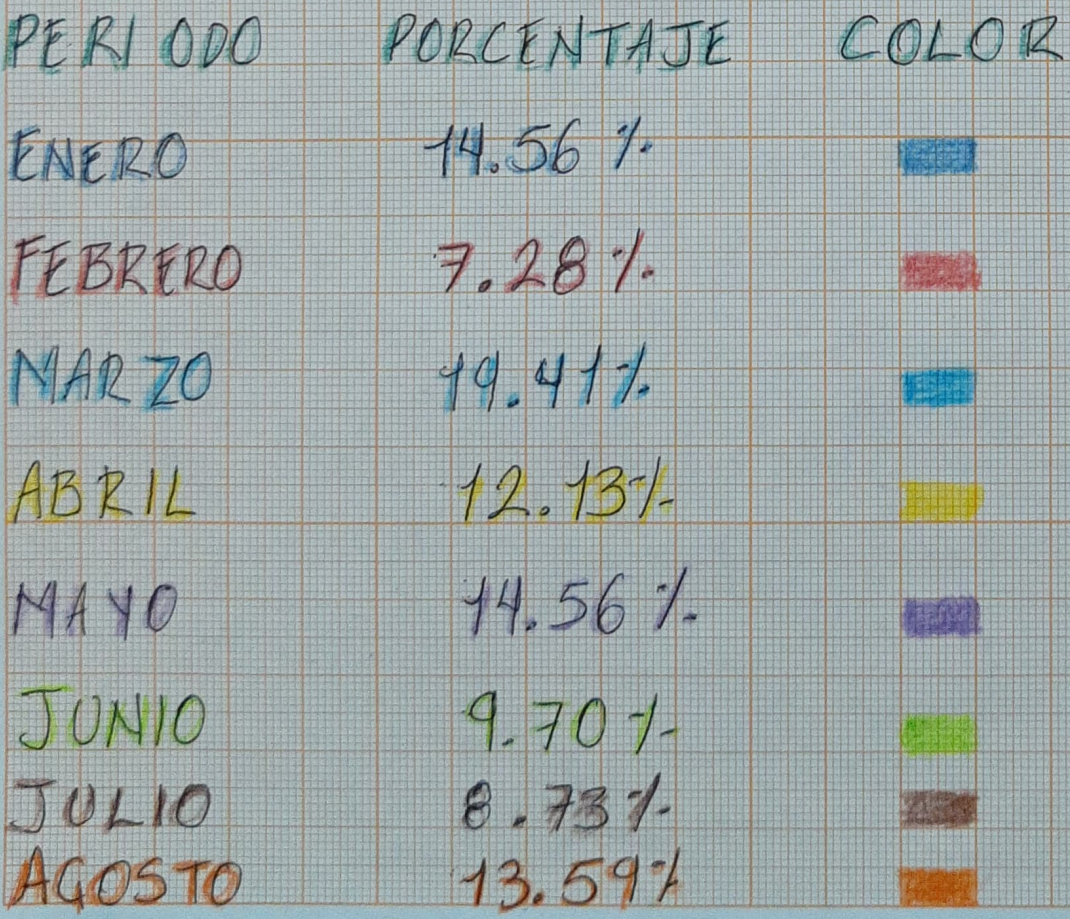 PERIODO PORCENTAJE COLOR
ENERO 14.56 %
FEBRERO 7.28 %
MARZO 19.41%
ABRIL 12.13%
MAYO 14.56 %
JUNIO 9.70 %
JULIO 8.73%
AGOSTO 13.59%